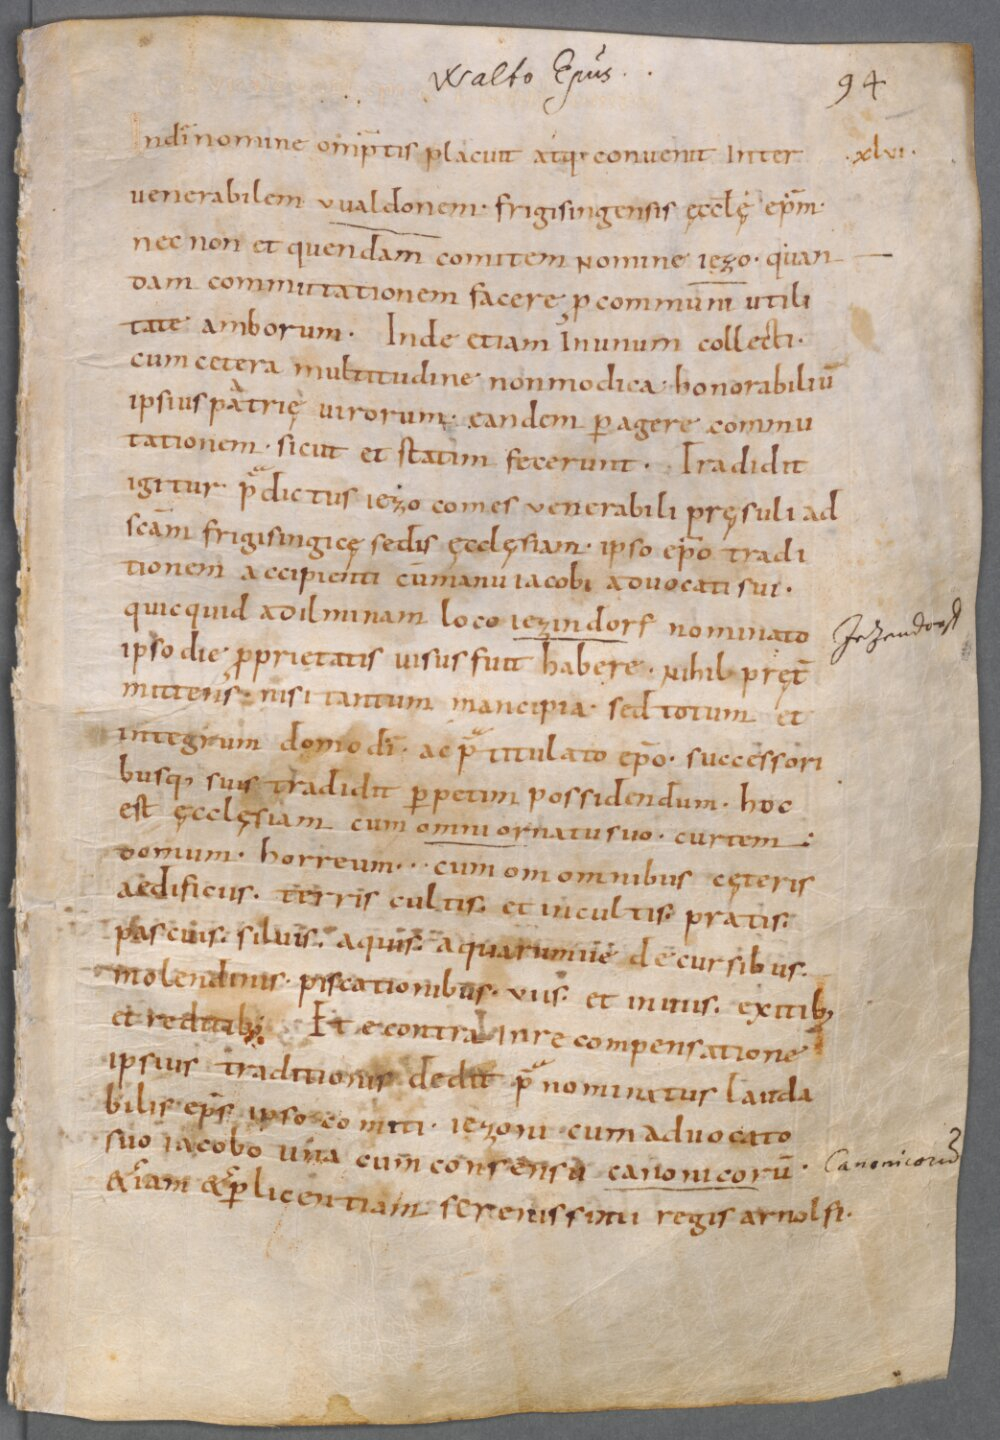 Walto Ep̃us..
94
Indi̅ nomine om̅ip̅tis placuit atq; conuenit Inter
.xlvi.
venerabilem vualdonem· frigisingensis ęcclę̅ ep̅m·
nec non et quendam comitem Nomine iezo· quan
dam commutationem facere p̱ communi utili
tate amborum· Inde etiam Inunum collecti·
cum cetera multitudine nonmodica· honorabiliu̅
ipsius patrię virorum· eandem p̱agere commu
tationem· sicut et statim fecerunt· Tradidit
igitur p̃dictus iezo comes venerabili pręsuli ad
sc̅am frigisingicę sedis ęcclęsiam· ipso ep̅o tradi
tionem accipienti cu̅manu iacobi aduocati sui·
quicquid adilminam loco iezindorf nominato
Jezendorf
ipso die p̱prietatis uisus fuit habere· Nihil pręt̅
mittens· nisi tantum mancipia· sed totum et
integrum domo di̅· ac p̃titulato ep̅o· successori
busq; suis tradidit p̱petim possidendum· hoc
est ęcclęsiam cum omni ornatu suo· curtem·
domum· horreum··· cum om omnibus cęteris
aedificiis· terris cultis· et incultis· pratis·
pascuis· siluis· aquis· aquarumue decursibus·
molendinis· piscationibus· viis· et inuiis· exitib;
et reditib; Et econtra Inre compensatione
ipsius traditionis dedit p̃nominatus lauda
bilis ep̅s ipso comiti· iezoni cum aduocato
suo iacobo una cum consensu canonicoru̅·
Canonicoru̅
&iam &p̱ licentiam serenissimi regis arnolfi·